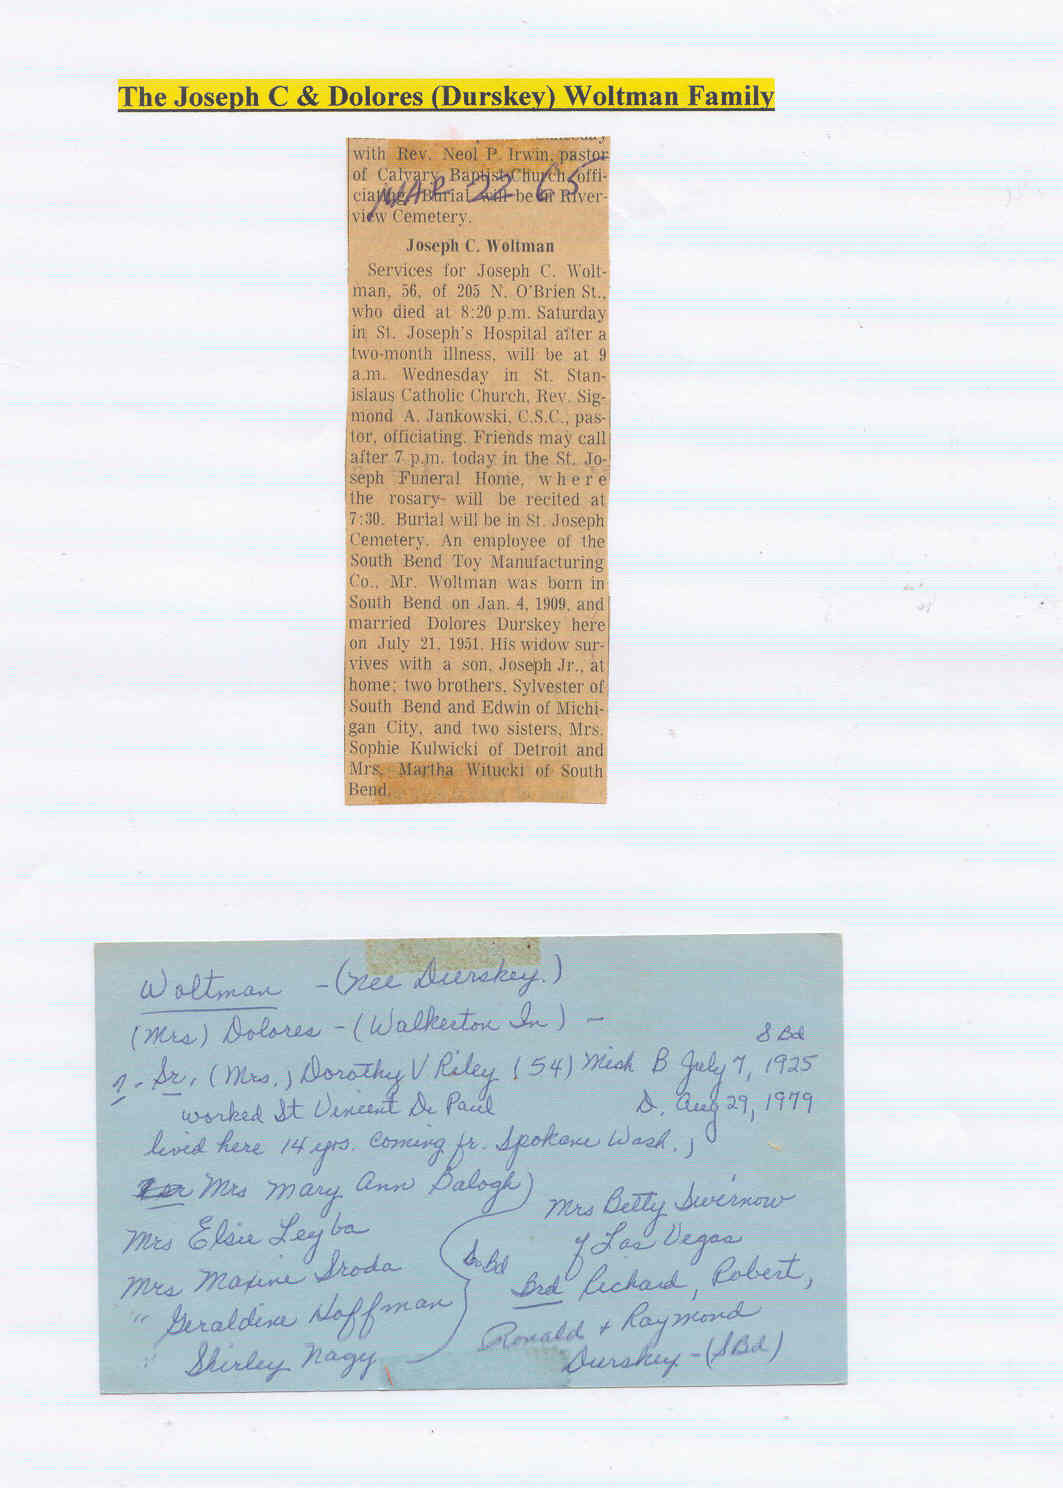 The Joseph C & Dolores (Durskey) Woltman Family
with Rev. Neol P. Irwin, pastor
of Calvary Baptist Church, offi-
ciating. Burial will be in River-
view Cemetery.
MAR 22 65
Joseph C. Woltman
Services for Joseph C. Wolt-
man, 56, of 205 N. O'Brien St.,
who died at 8:20 p.m. Saturday
in St. Joseph's Hospital after a
two-month illness, will be at 9
a.m. Wednesday in St. Stan-
islaus Catholic Church, Rev. Sig-
mond A. Jankowski, C.S.C., pas-
tor, officiating. Friends may call
after 7 p.m. today in the St. Jo-
seph Funeral Home, where
the rosary will be recited at
7:30. Burial will be in St. Joseph
Cemetery. An employee of the
South Bend Toy Manufacturing
Co., Mr. Woltman was born in
South Bend on Jan. 4, 1909, and
married Dolores Durskey here
on July 21, 1951. His widow sur-
vives with a son, Joseph Jr., at
home; two brothers, Sylvester of
South Bend and Edwin of Michi-
gan City, and two sisters, Mrs.
Sophie Kulwicki of Detroit and
Mrs. Martha Witucki of South
Bend.
Woltman - (Nee Durskey.)
(Mrs) Dolores - (Walkerton In) -
S Bd
Sr, (Mrs.) Dorothy V Riley (54) Mish B July 7, 1925
worked St Vincent De Paul D. Aug 29, 1979
lived here 14 yrs. coming fr. Spokane Wash.,
Mrs Mary Ann Balogh)
Mrs Betty Swirnow
Mrs Elsie Leyba
of Las Vegas
So Bd
Mrs Maxine Sroda
Brd Richard, Robert,
" Geraldine Hoffman
Ronald + Raymond
" Shirley Nagy
Durskey - (S Bd)